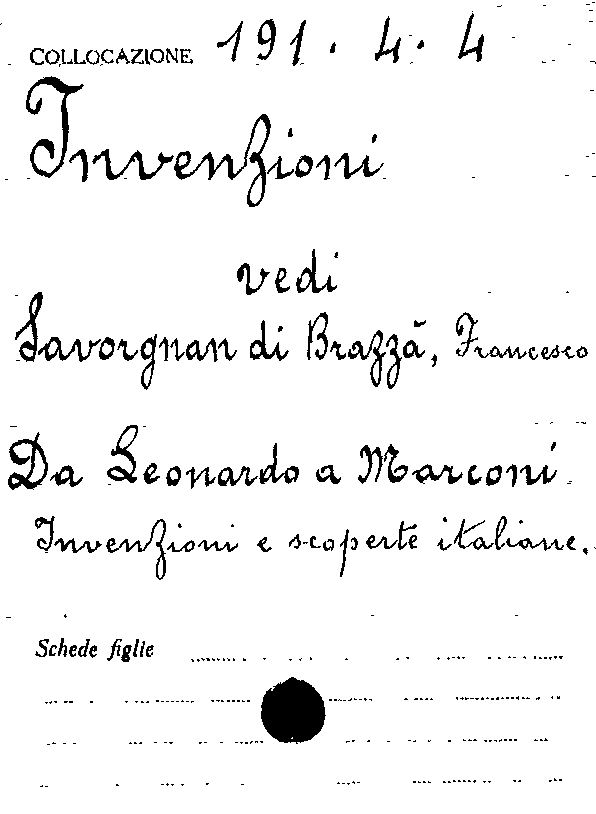 COLLOCAZIONE 191. 4. 4
Invenzioni
vedi
Savorgnan di Brazzà, Francesco
Da Leonardo a Marconi.
Invenzioni e scoperte italiane.
Schede figlie